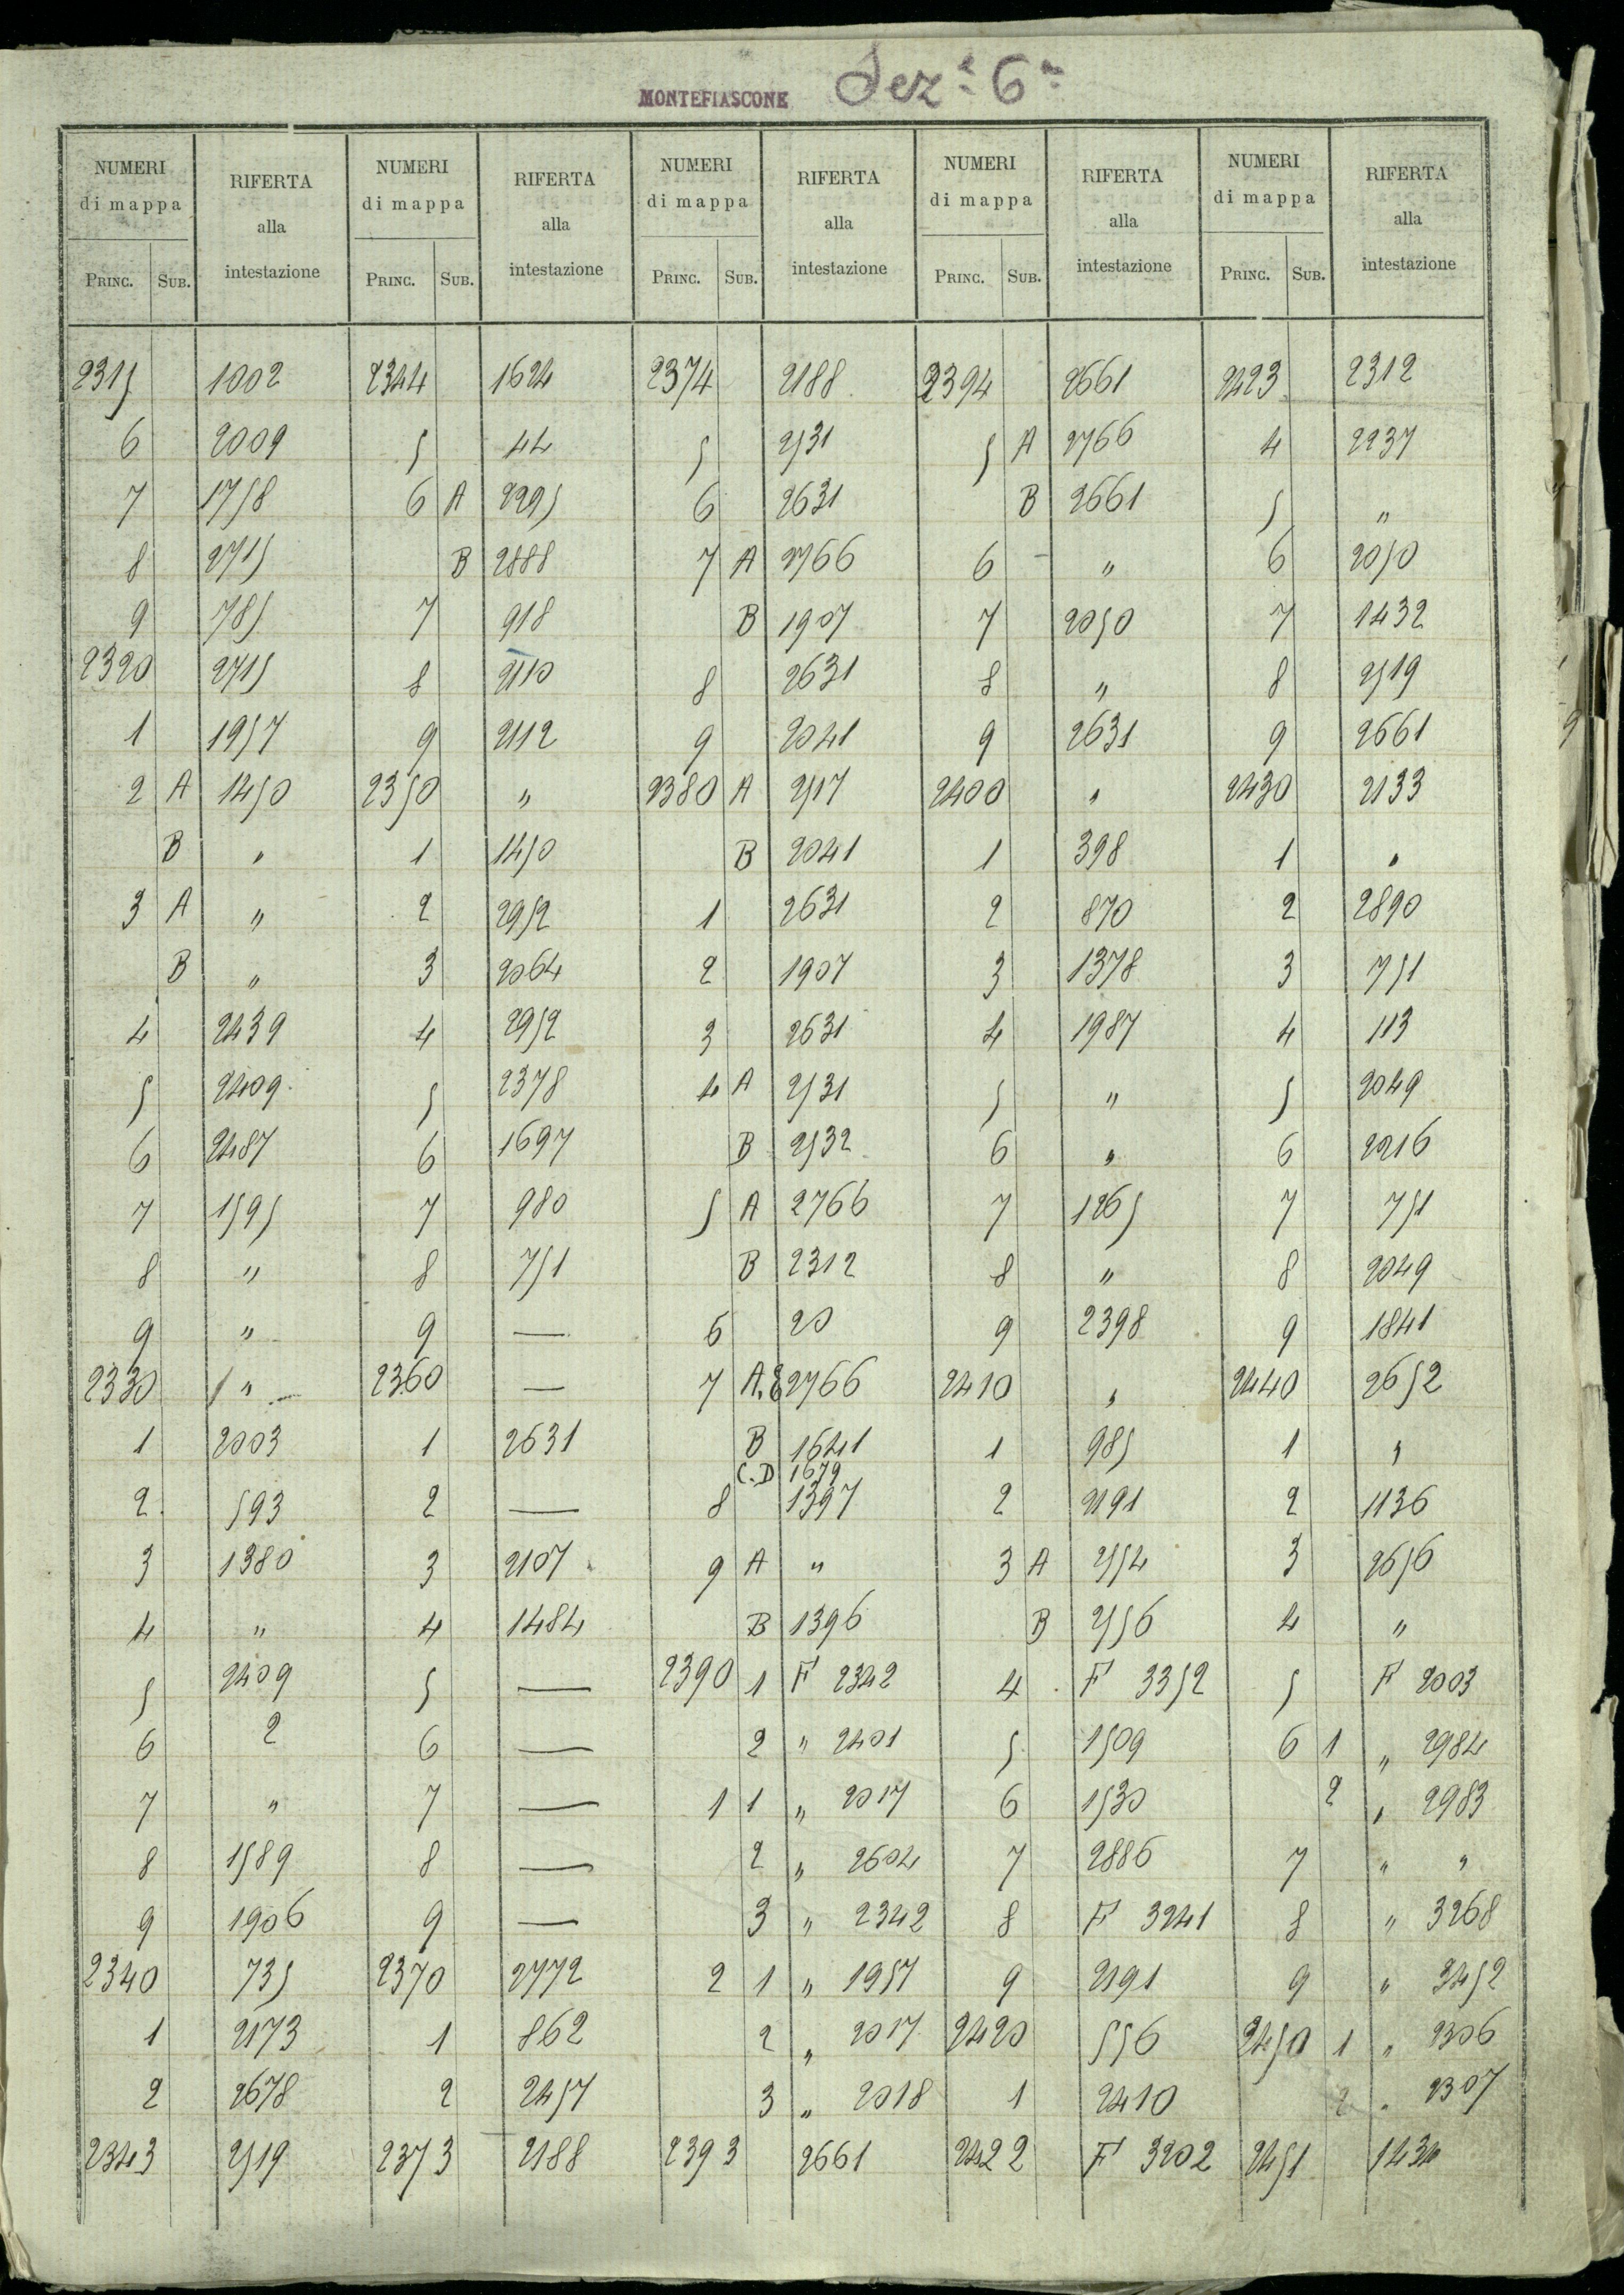 MONTEFIASCONE Sez.e 6a
NUMERI di mappa RIFERTA alla intestazione NUMERI di mappa RIFERTA alla intestazione NUMERI di mappa RIFERTA alla intestazione NUMERI di mappa RIFERTA alla intestazione NUMERI di mappa RIFERTA alla intestazione
PRINC. SUB. PRINC. SUB. PRINC. SUB. PRINC. SUB. PRINC. SUB.
2315 1002 2344 1624 2374 2188 2394 2661 2423 2312
6 2009 5 44 5 2531 5 A 2766 4 2237
7 1758 6 A 2295 6 2631 B 2661 5 "
8 2715 B 2888 7 A 2766 6 - " 6 2050
9 785 7 918 B 1907 7 2050 7 1432
2320 2715 8 2110 8 2631 8 " 8 2519
1 1957 9 2112 9 2041 9 2631 9 2661
2 A 1450 2350 " 2380 A 2517 2400 " 2430 2133
B " 1 1450 B 2041 1 398 1 "
3 A " 2 2952 1 2631 2 870 2 2890
B " 3 2064 2 1907 3 1378 3 751
4 2439 4 2952 3 2631 4 1987 4 113
5 2409 5 2378 4 A 2531 5 " 5 2049
6 2487 6 1697 B 2532 6 " 6 2216
7 1595 7 980 5 A 2766 7 1265 7 751
8 " 8 751 B 2312 8 " 8 2049
9 " 9 — 6 20 9 2398 9 1841
2330 " 2360 — 7 A.E 2766 2410 " 2440 2652
1 2003 1 2631 B 1641 1 985 1 "
C.D 1679
2 593 2 — 8 1397 2 2191 2 1136
3 1380 3 2107 9 A " 3 A 2554 3 2656
4 " 4 1484 B 1396 B 2556 4 "
5 2409 5 — 2390 1 F 2342 4 F 3352 5 F 2003
6 2 6 — 2 " 2401 5 1509 6 1 " 2984
7 " 7 — 1 1 " 2017 6 1530 2 " 2983
8 1589 8 — 2 " 2604 7 2886 7 " "
9 1906 9 — 3 " 2342 8 F 3241 8 " 3268
2340 735 2370 2772 2 1 " 1957 9 2191 9 " 3452
1 2173 1 862 2 " 2017 2420 556 2450 1 " 2306
2 2678 2 2457 3 " 2018 1 2410 2 " 2307
2343 2519 2373 2188 2393 2661 2422 F 3202 2451 1434